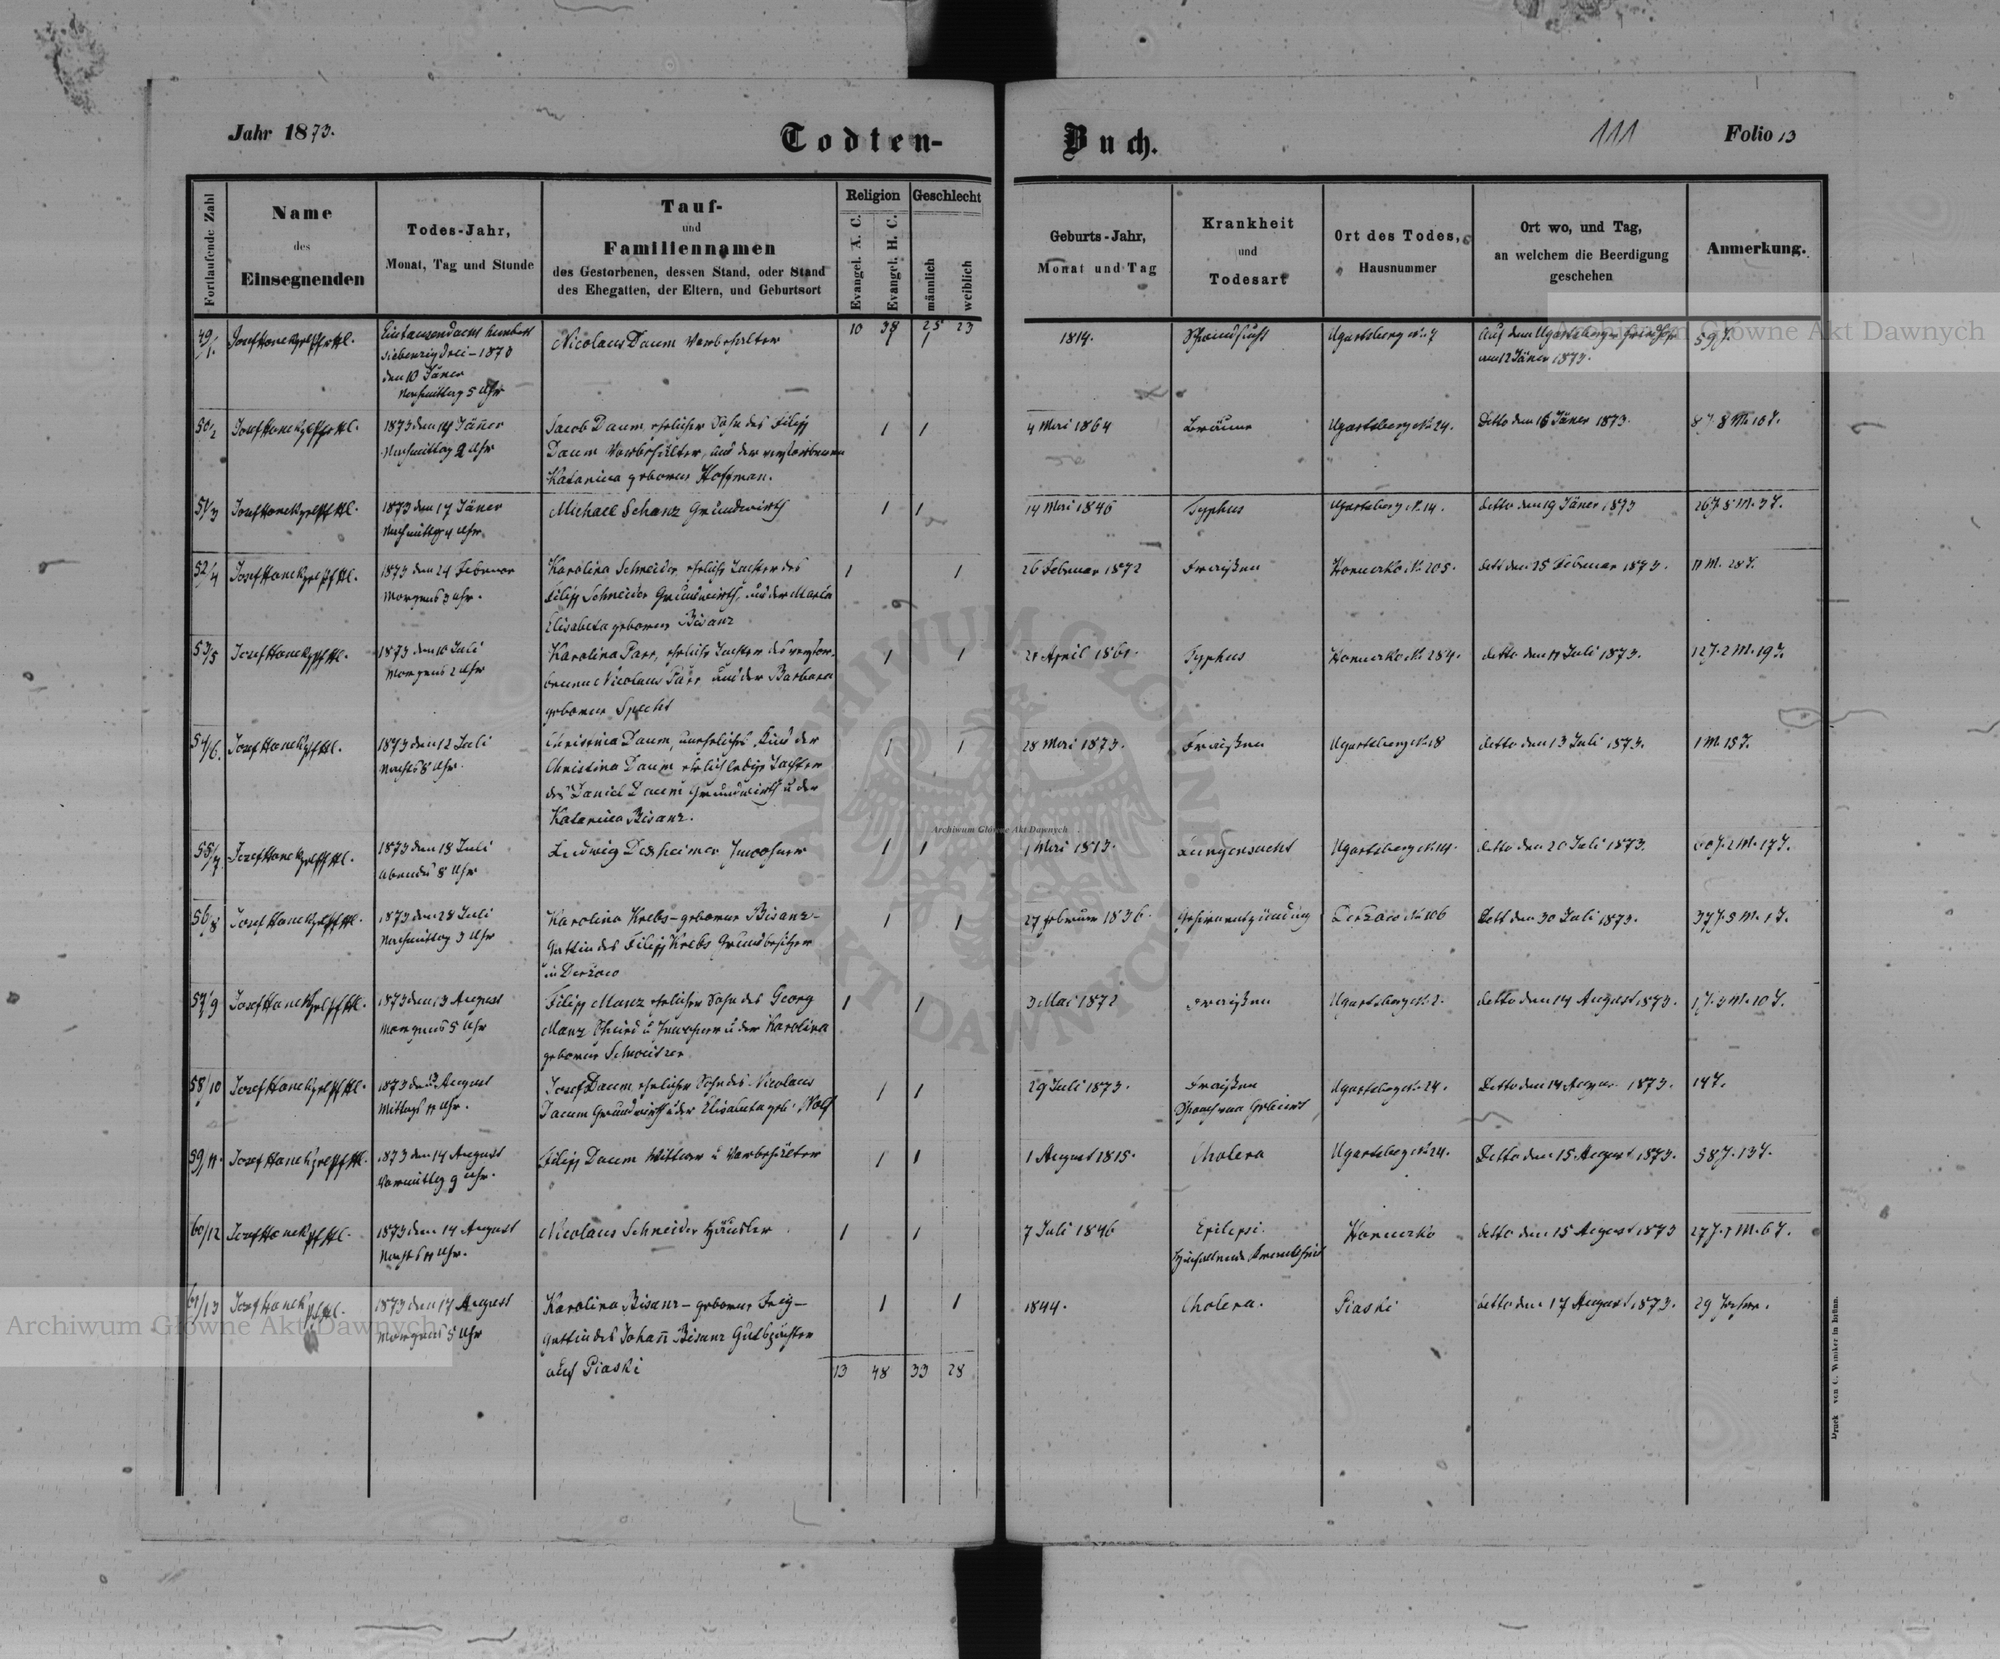 Jahr 1873.
Todten-
Buch.
111
Folio 13
Fortlaufende Zahl
Name
des
Einsegnenden
Todes-Jahr,
Monat, Tag und Stunde
Tauf-
und
Familiennamen
des Gestorbenen, dessen Stand, oder Stand
des Ehegatten, der Eltern, und Geburtsort
Religion
Evangel. A. C.
Evangel. H. C.
Geschlecht
männlich
weiblich
Geburts-Jahr,
Monat und Tag
Krankheit
und
Todesart
Ort des Todes,
Hausnummer
Ort wo, und Tag,
an welchem die Beerdigung
geschehen
Anmerkung.
10 38 25 23
49/1. Josef Hanek
Eintausendacht hundert
siebenzig drei - 1873
den 10 Jäner
Nachmittag 5 Uhr
Nicolaus Daum Vorbehalter
1 1
1814.
Schwindsucht
Ugartsberg № 7
Auf dem Ugartsberger Friedhofe
am 12 Jäner 1873.
59 J.
50/2 Josef Hanek
1873 den 14 Jäner
Nachmittag 2 Uhr
Jacob Daum, ehelicher Sohn des Filipp
Daum Vorbehälter, und der verstorbenen
Katarina geborene Hoffman.
1 1
4 Mai 1864
Bräune
Ugartsberg № 24.
Detto den 16 Jäner 1873.
8 J. 8 M. 10 T.
51/3 Josef Hanek
1873 den 17 Jäner
Nachmittag 4 Uhr
Michael Schanz Grundwirth
1 1
14 Mai 1846
Typhus
Ugartsberg № 14.
detto den 19 Jäner 1873
26 J. 8 M. 3 T.
52/4 Josef Hanek
1873 den 24 Februar
Morgens 3 Uhr.
Karolina Schneider, eheliche Tochter des
Filipp Schneider Grundwirth, und der Maria
Elisabeta geborene Bisanz
1 1
26 Februar 1872
Fraißen
Horucko № 205.
detto den 25 Februar 1873.
11 M. 28 T.
53/5 Josef Hanek
1873 den 10 Juli
Morgens 2 Uhr
Karolina Parr, eheliche Tochter des verstor-
benen Nicolaus Parr und der Barbara
geborene Specht
1 1
21 April 1861.
Typhus
Horucko № 284.
detto den 11 Juli 1873.
12 J. 2 M. 19 T.
54/6. Josef Hanek
1873 den 12 Juli
Nachts 8 Uhr.
Christina Daum, uneheliches Kind der
Christina Daum ehelich ledige Tochter
des Daniel Daum Grundwirth u der
Katarina Bisanz.
1 1
28 Mai 1873.
Fraißen
Ugartsberg № 8
detto den 13 Juli 1873.
1 M. 15 T.
55/7 Josef Hanek
1873 den 18 Juli
abends 8 Uhr
Ludwig Desheimer Inwohner
1 1
1 Mai 1813.
Lungensucht
Ugartsberg № 14.
detto den 20 Juli 1873.
60 J. 2 M. 17 T.
56/8 Josef Hanek
1873 den 28 Juli
Nachmittag 3 Uhr
Karolina Krebs - geborene Bisanz -
Gattin des Filipp Krebs Grundbesitzer
in Derżow
1 1
27 Februar 1836.
Gehirnentzündung
Derżow № 106
Dett den 30 Juli 1873.
37 J. 5 M. 1 T.
57/9 Josef Hanek
1873 den 13 August
Morgens 5 Uhr
Filipp Manz ehelicher Sohn des Georg
Manz Schmied u Inwohner u der Karolina
geborene Schweitzer
1 1
3 Mai 1872
Fraißen
Ugartsberg № 2.
detto den 14 August 1873.
1 J. 3 M. 10 T.
58/10 Josef Hanek
1873 den August
Mittags 11 Uhr.
Josef Daum, ehelicher Sohn des Nicolaus
Daum Grundwirth u der Elisabeta geb: Wolf
1 1
29 Juli 1873.
Fraißen
Ugartsberg № 24.
Detto den 14 August 1873.
14 T.
59/11. Josef Hanek
1873 den 14 August
Vormittag 9 Uhr.
Filipp Daum Wittwer u Vorbehälter
1 1
1 August 1815.
Cholera
Ugartsberg № 24.
Detto den 15 August 1873.
58 J. 13 T.
60/12 Josef Hanek
1873 den 14 August
Nachts 11 Uhr.
Nicolaus Schneider Händler
1 1
7 Juli 1846
Epilepsi.
Horucko
detto den 15 August 1873
27 J. 1 M. 6 T.
61/13 Josef Hanek
1873 den 17 August
Morgens 5 Uhr
Karolina Bisanz - geborene Freg -
Gattin des Johann Bisanz Gutspächter
auf Piaski
1 1
1844.
Cholera.
Piaski
detto den 17 August 1873.
29 Jahre.
13 48 33 28
Druck von C. Winiker in Brünn.
Archiwum Główne Akt Dawnych
Archiwum Główne Akt Dawnych
Archiwum Główne Akt Dawnych
ARCHIWUM GŁÓWNE
AKT DAWNYCH